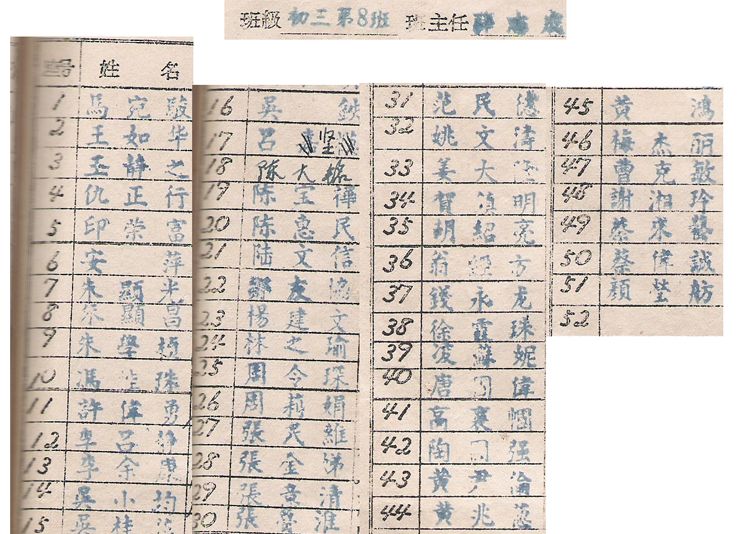 班級 初三第8班 班主任
座号 姓名
1 馬宛駿
2 王如华
3 王静之
4 仇正行
5 印荣富
6 安萍
7 朱顯光
8 朱顯昌
9 朱學
10 馮 珠
11 許偉勇
12 李呂
13 李余康
14 吳小均
15 吳桂
16 吳
17 呂坚
18 陈大榕
19 陈宝禪
20 陈惠民
21 陆文信
22 鄒友協
23 楊建文
24 林之瑜
25 周令琛
26 周莉娟
27 張民維
28 張金涕
29 張章清
30 張 淮
31 范民德
32 姚文濤
33 姜大
34 賀 明
35 胡紹亮
36 翁 方
37 钱永龙
38 徐霞珠
39 凌蘇妮
40 唐国偉
41 高襄
42 陶国强
43 黄尹淪
44 黄兆
45 黄鴻
46 梅杰丽
47 曹克敏
48 謝湘玲
49 蔡來
50 蔡偉誠
51 顔 舫
52